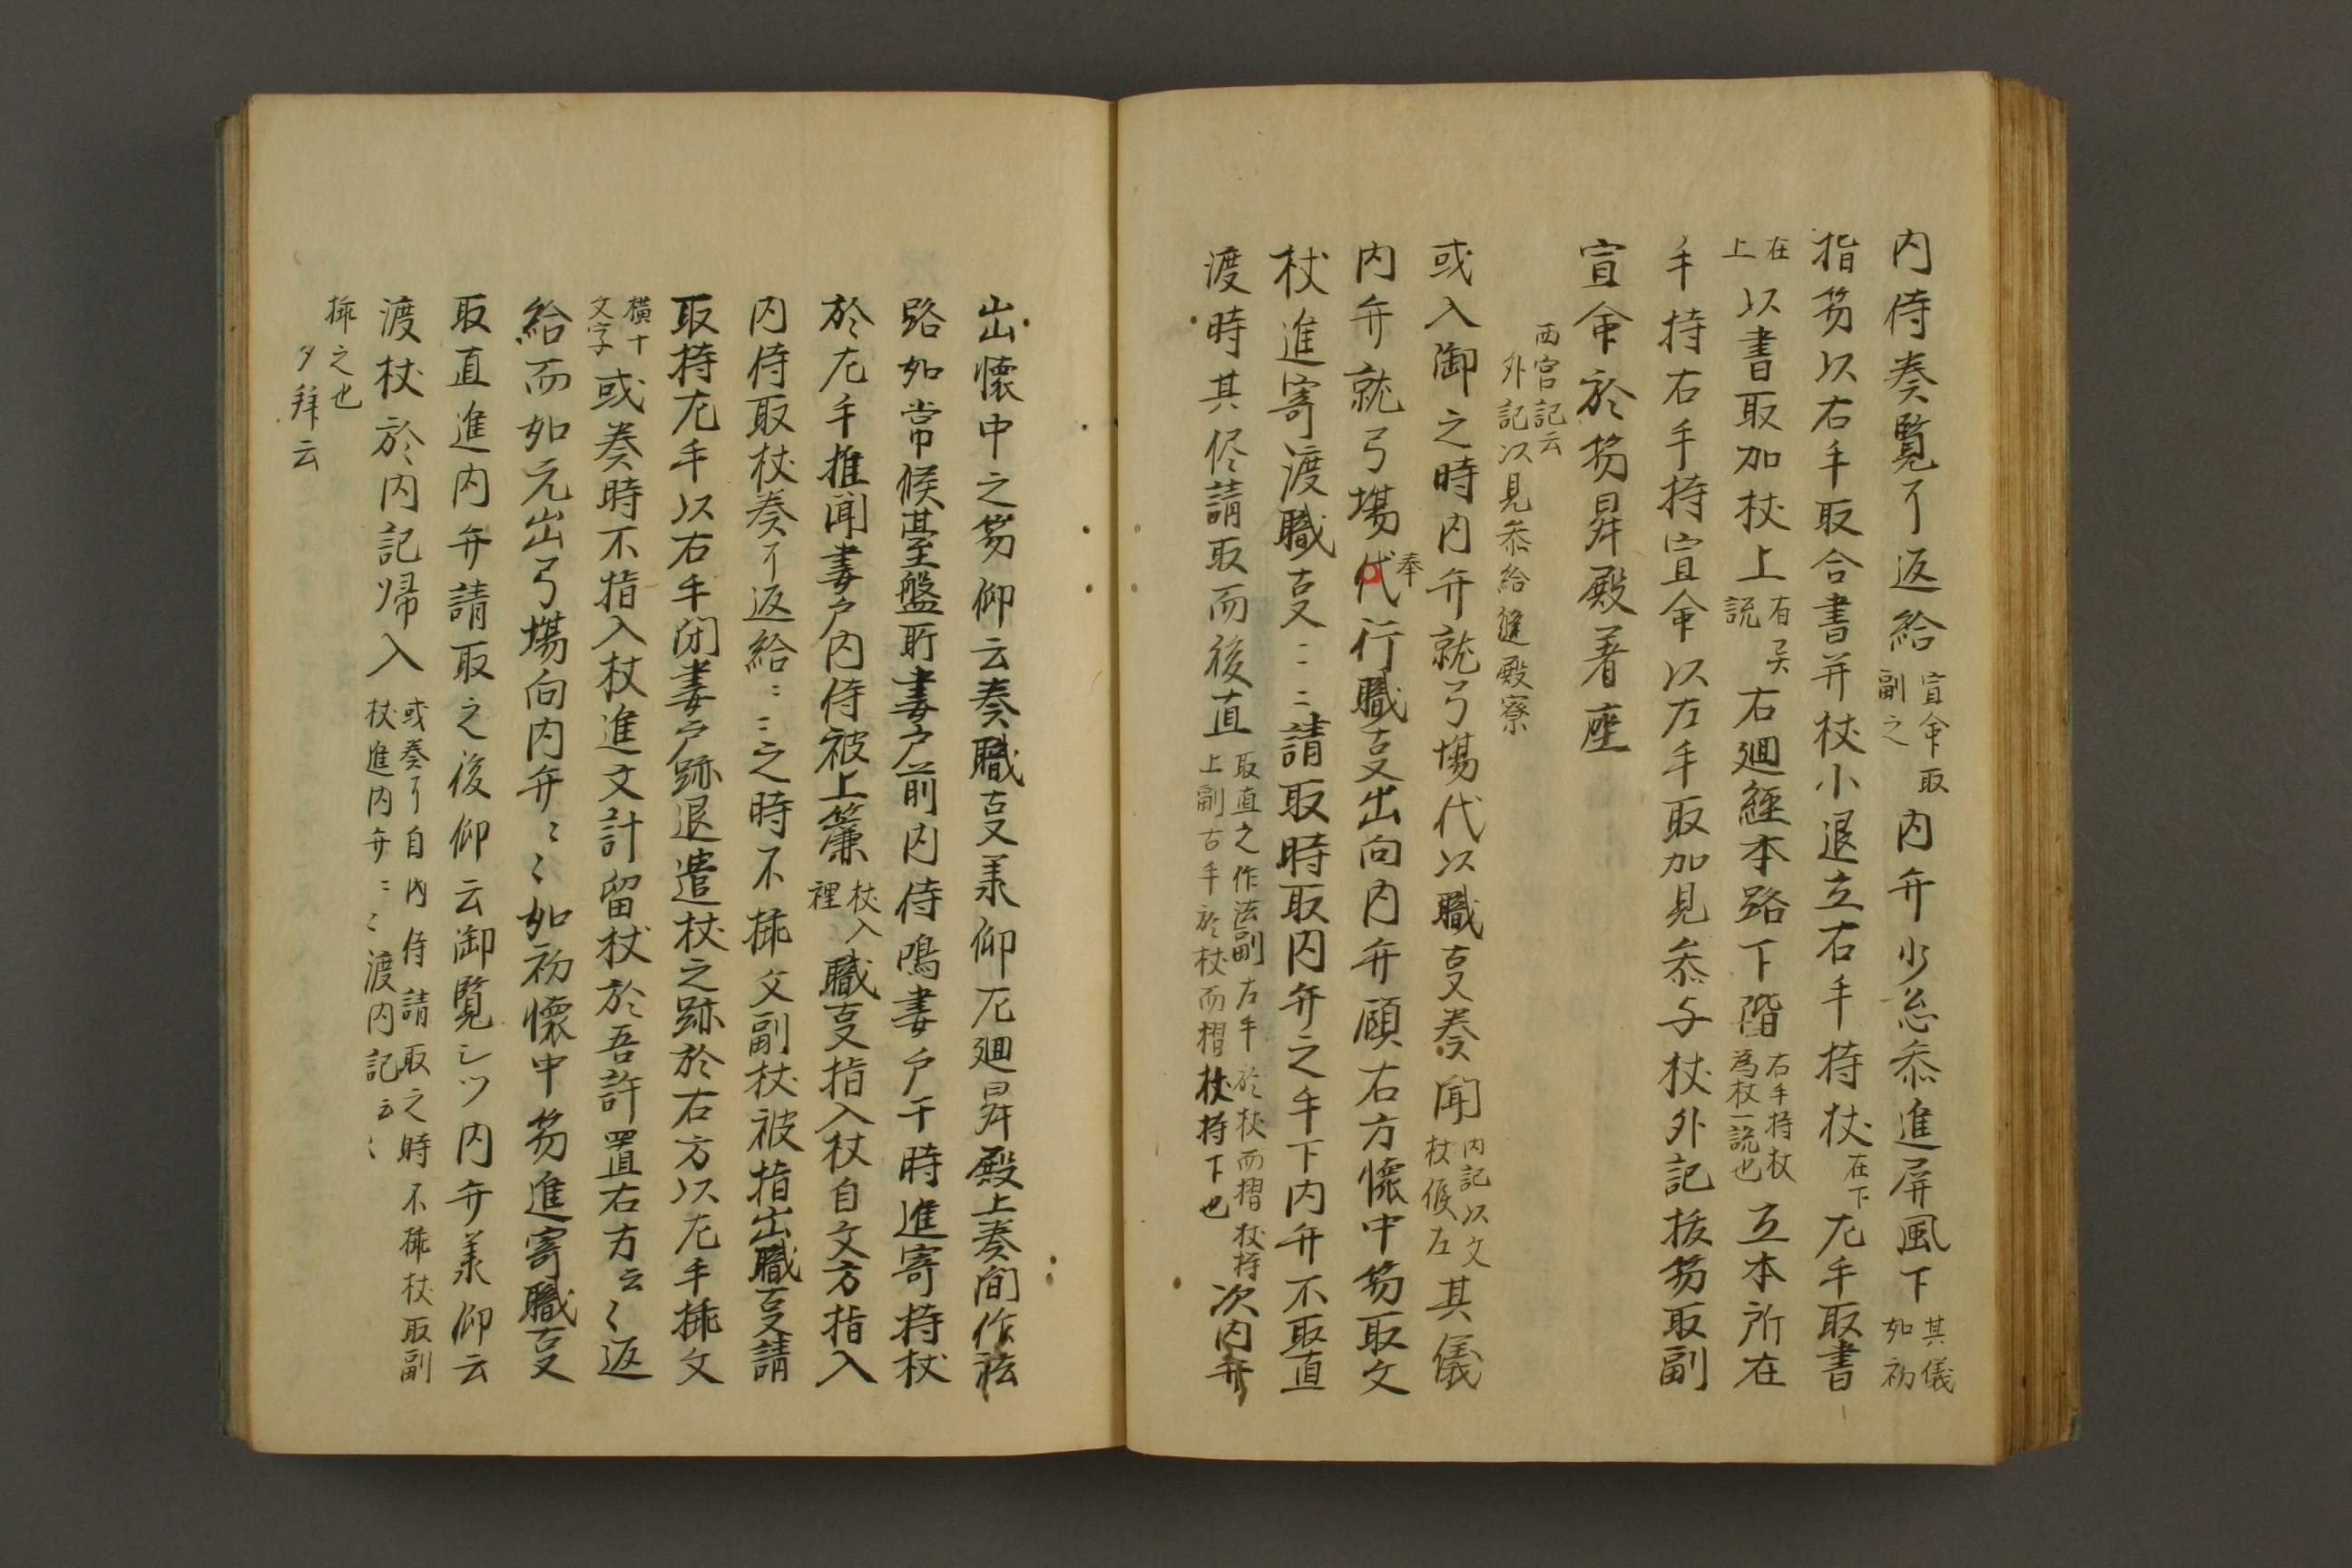 内侍奏覧了返給宣命取副之内弁少忩参進屏風下其儀如初
指笏以右手取合書并杖小退立右手持杖在下左手取書
在上以書取加杖上有異説右廻経本路下階右手持杖為杖一説也立本所在
手持右手持宣命以左手取加見参与杖外記抜笏取副
宣命於笏昇殿着座
西宮記云
外記以見参給縫殿寮
或入御之時内弁就弓場代以職事奏聞内記以文杖候左其儀
内弁就弓場代奉行職事出向内弁顧右方懐中笏取文
杖進寄渡職事〻〻請取時取内弁之手下内弁不取直
渡時其侭請取而後直取直之作法副左手於杖而摺杖持上副右手於杖而摺杖持下也次内弁
出懐中之笏仰云奏職事承仰左廻昇殿上奏間作法
路如常候基盤所妻戸前内侍鳴妻戸于時進寄持杖
於左手推開妻戸内侍被上簾杖入裡職事指入杖自文方指入
内侍取杖奏了返給〻〻之時不挿文副杖被指出職事請
取持左手以右手閉妻戸跡退遣杖之跡於右方以左手挿文
横十文字或奏時不指入杖進文計留杖於吾許置右方云〻返
給而如元出弓場向内弁〻〻如初懐中笏進寄職事
取直進内弁請取之後仰云御覧シツ内弁承仰云
渡杖於内記帰入或奏了自内侍請取之時不挿杖取副杖進内弁〻〻渡内記云〻
挿之也
夕拜云